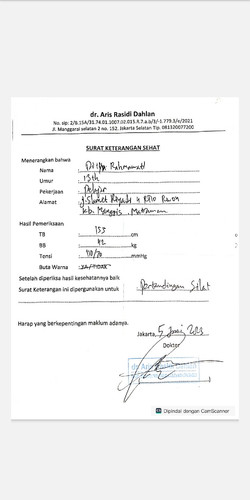 dr. Aris Rasidi Dahlan
No. sip: 2/B.15A/31.74.01.1007.02.015.R.7.a.b/3/-1.779.3/e/2021
Jl. Manggarai selatan 2 no. 152, Jakarta Selatan Tlp. 081320077200
SURAT KETERANGAN SEHAT
Menerangkan bahwa
Nama : Rahmawati
Umur : 13th
Pekerjaan : Pelajar
Alamat : Jl. Slamet Riyadi 4
Kb. Manggis, Matraman
Hasil Pemeriksaan
TB : 153 cm
BB : 42 kg
Tensi : 110/70 mmHg
Buta Warna : YA/TIDAK
Setelah diperiksa hasil kesehatannya baik
Surat Keterangan ini dipergunakan untuk : Pertandingan Silat
Harap yang berkepentingan maklum adanya.
Jakarta, 5 Juni 2023
Dokter
Dipindai dengan CamScanner